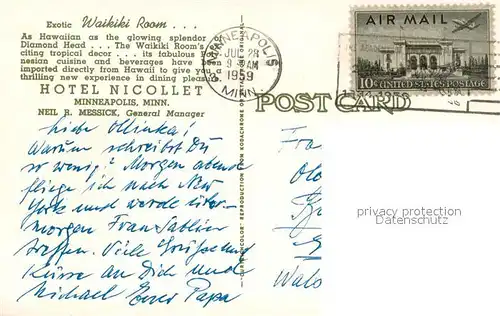 Exotic Waikiki Room...
As Hawaiian as the glowing splendor of
Diamond Head ... The Waikiki Room's
citing tropical decor ... its fabulous
nesian cuisine and beverages have been
imported directly from Hawaii to give you a
thrilling new experience in dining pleasure.
HOTEL NICOLLET
MINNEAPOLIS, MINN.
NEIL R. MESSICK, General Manager
MINNEAPOLIS
JUL 28
9 AM
1959
MINN.
AIR MAIL
10¢ UNITED STATES POSTAGE
POST CARD
Liebe
Warum schreibst Du
so wenig? Morgen abend
fliege ich nach New
York und werde über-
morgen Frau
treffen. Viele Grüße und
Küsse an Dich und
Michael Euer Papa
Fra
privacy protection
Datenschutz